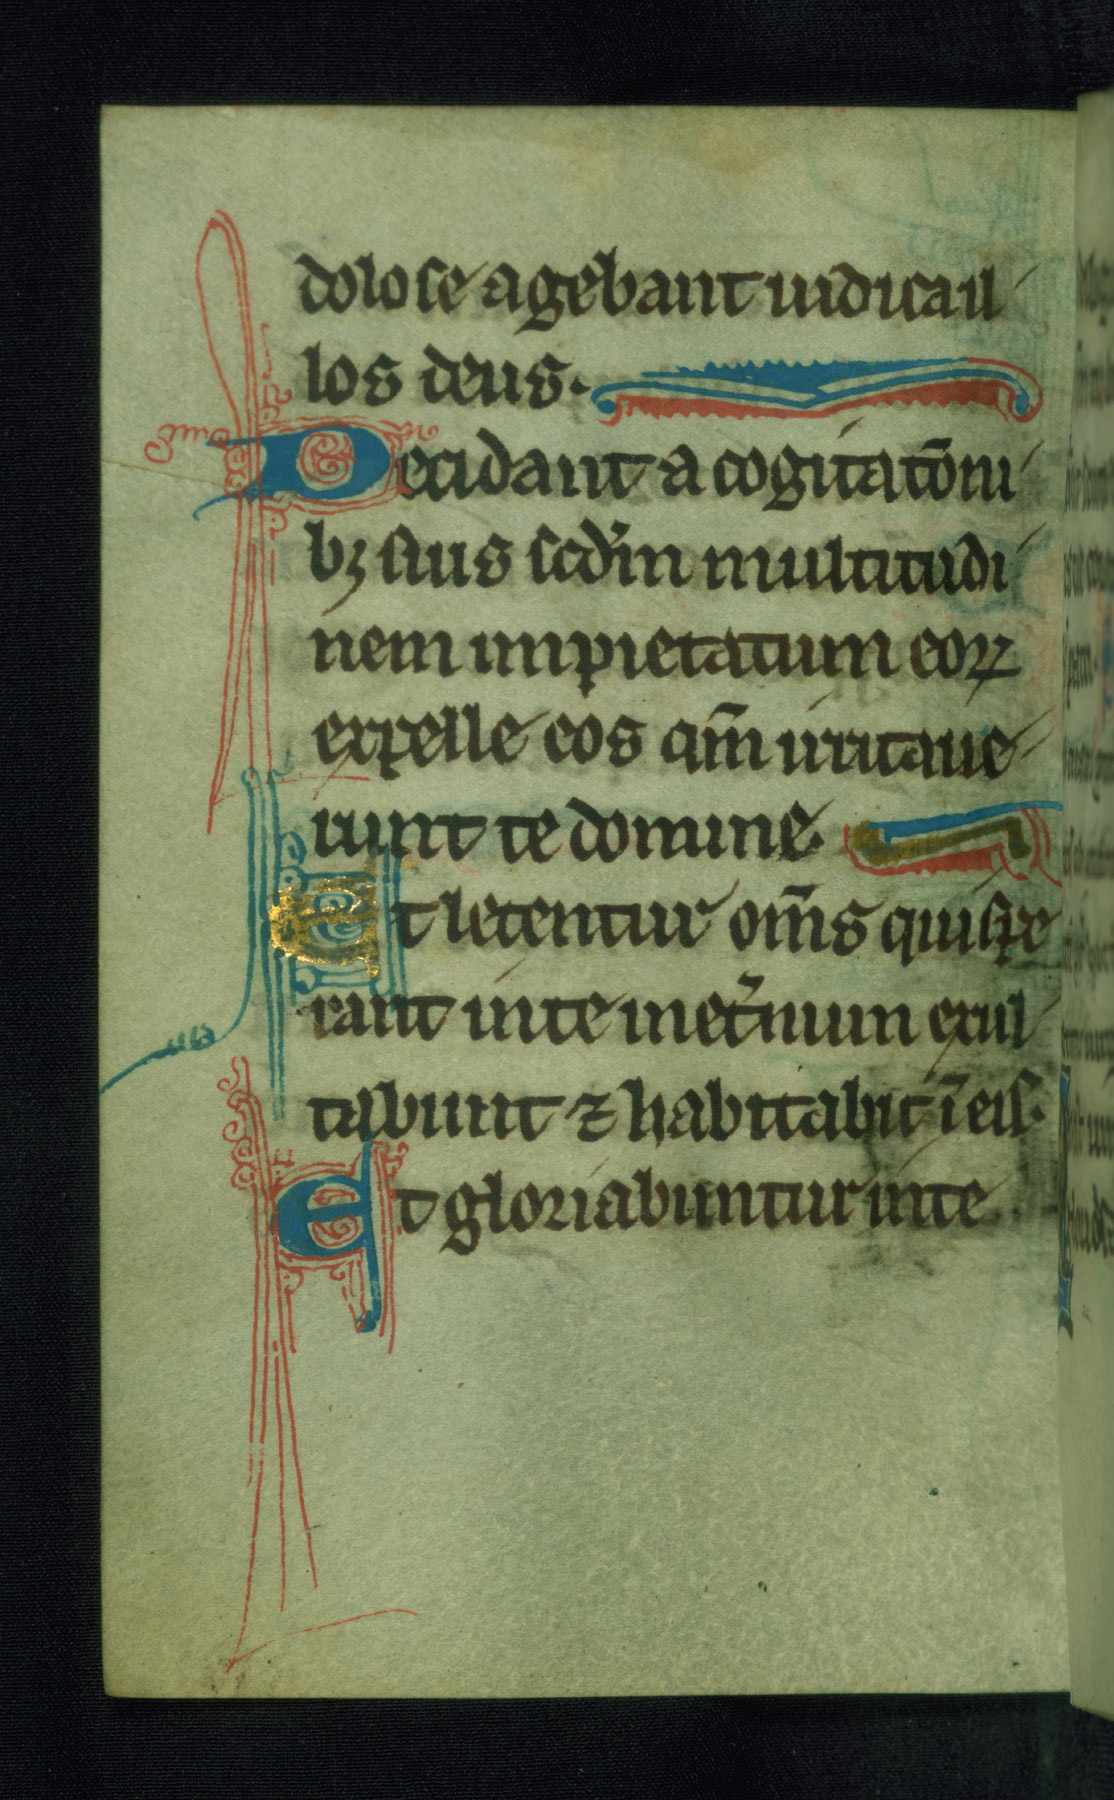 dolose agebant iudica il
los deus.
Decidant a cogitatōni
bꝫ suis scd'm multitudi
nem impietatum eoꝝ
expelle eos qm̄ irritaue
runt te domine.
Et letentur om̄s qui spe
rant in te in et'num exul
tabunt ⁊ habitabit ī eis.
Et gloriabuntur in te